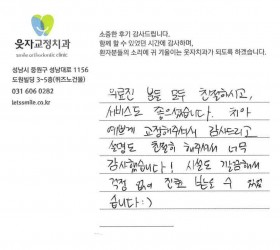 웃자교정치과
smile orthodontic clinic
성남시 중원구 성남대로 1156
도림빌딩 3~5층(위즈노건물)
031 606 0282
letssmile.co.kr
소중한 후기 감사드립니다.
함께 할 수 있었던 시간에 감사하며,
환자분들의 소리에 귀 기울이는 웃자치과가 되도록 하겠습니다.
의료진 분들 모두 친절하시고,
서비스도 좋으셨습니다. 치아
예쁘게 교정해주셔서 감사드리고
설명도 친절히 해주셔서 너무
감사했습니다! 시설도 깔끔해서
걱정 없이 진료 받을 수 있었
습니다:)